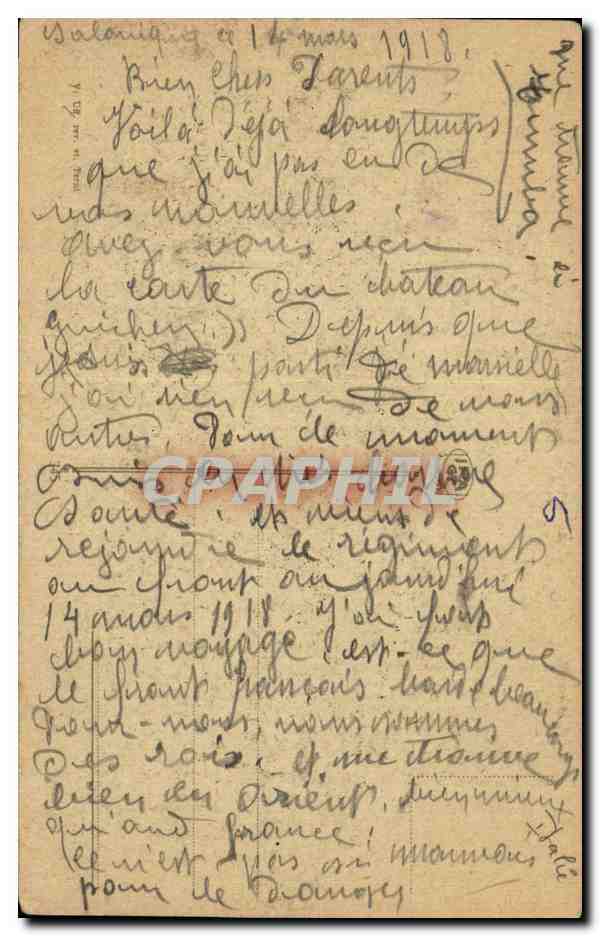 Salonique le 14 mars 1918.
Bien Chers Parents,
Voilà Déjà Longtemps
que j'ai pas eu De
vos nouvelles.
avez vous reçu
la carte du château
Depuis que
je suis parti De Marseille
j'ai rien reçu De vous
autres. Pour le moment
Santé. et viens de
rejoindre le régiment
au front aujourd'hui
14 mars 1918. j'ai fait
bon voyage. est-ce que
le front français barde beaucoup
Pour-nous, nous sommes
Des rois. et me trouve
bien en Orient, bien mieux
qu'and france.
Ce n'est pas si mauvais
pour le Danger
que trouve
5
CPAPHIL